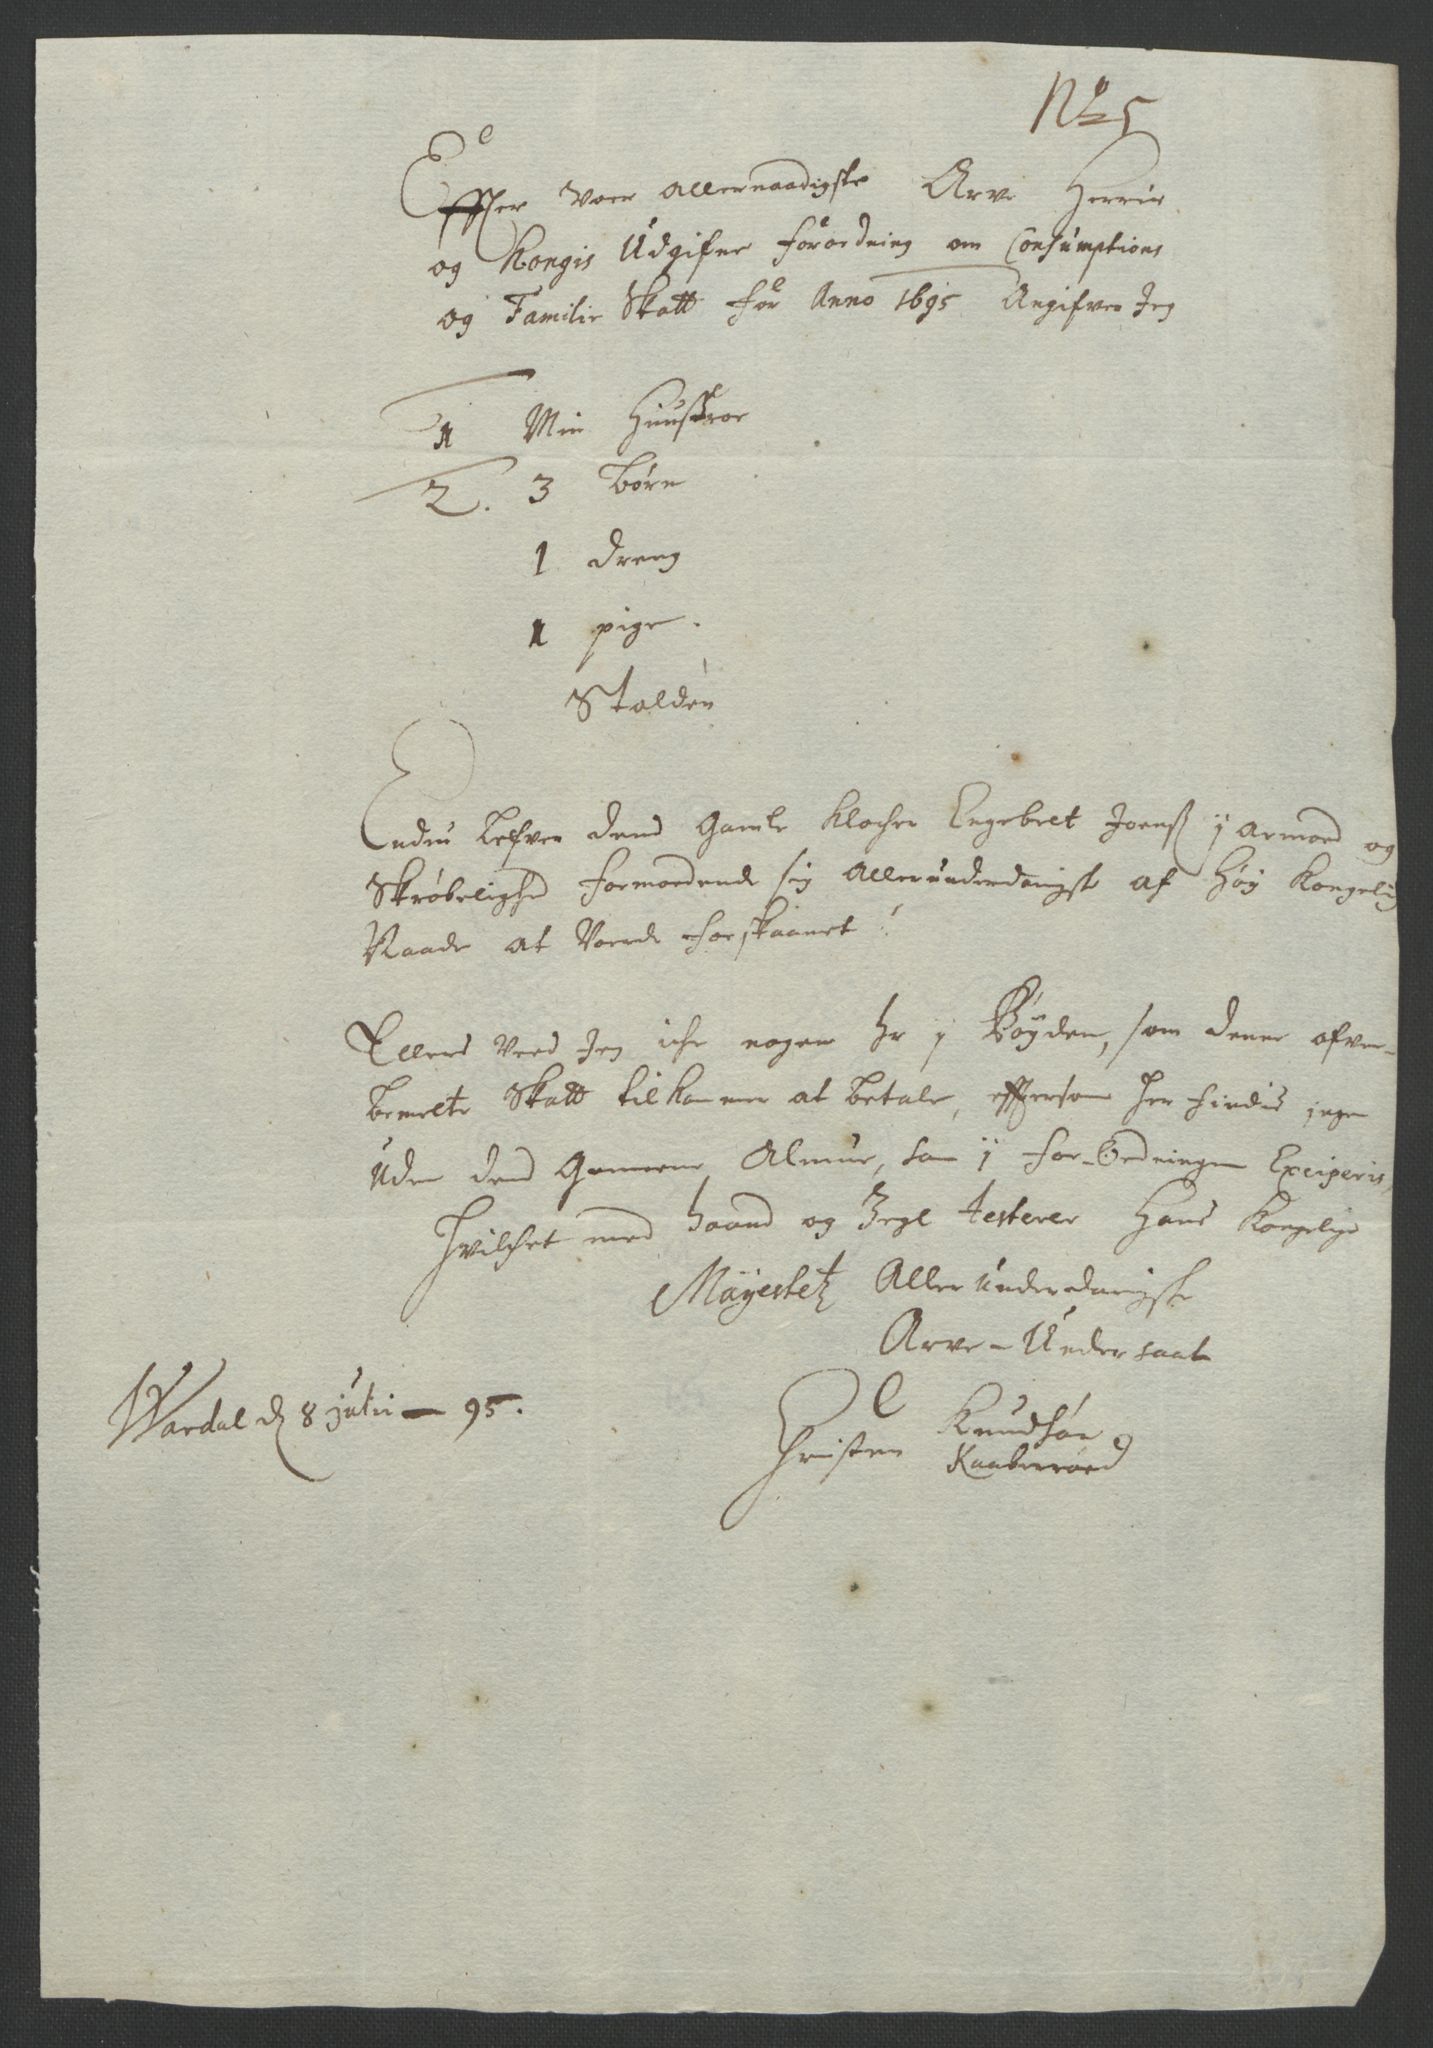 No 5
Effter voer allernaadigste Arve Herris
og Kongis Udgifne forordning om Consumptions
og Familie Skatt for Anno 1695 Angifver Jeg
1 Min Huustroe
2. 3 børn
1 dreng
1 pige.
Stalden
Endnu lefver dend gamle Klocher Engebret Joenß j armod og
Skrøbelighd formoedende sig allerunderdanigst af høy Kongelig
Naade at Vorde forskaanet!
Ellers veed Jeg iche nogen her j Bøyden, som denne ofven-
bemelte Skatt tilkommer at betale, effttersom her findis jngen
Uden dend Gemeene Almue, som j for-Ordningen Exciperis,
Hvilchet med haand og Zegl testerer Hans Kongelige
Mayestetz Aller underdanigste
Arve-Undersaat
Wardal d 8 julii - 95.
Christen Knudsøn
Kaaberøed